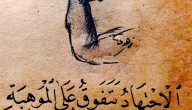 الْاِجْتِهَادُ يَتَفَوَّقُ عَلَى الْمَوْهِبَةِ